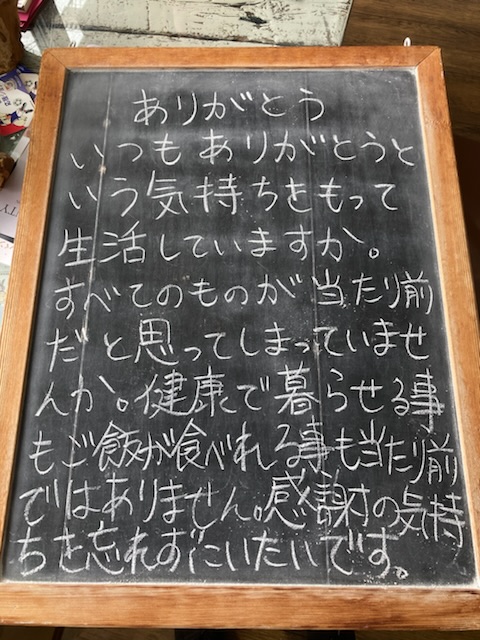 ありがとう
いつもありがとうと
いう気持ちをもって
生活していますか。
すべてのものが当たり前
だと思ってしまっていませ
んか。健康で暮らせる事
もご飯が食べれる事も当たり前
ではありません。感謝の気持
ちを忘れずにいたいです。